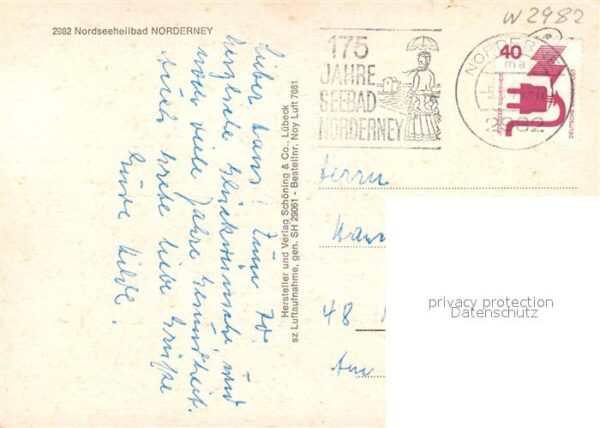 W2982
2982 Nordseeheilbad NORDERNEY
175
JAHRE
SEEBAD
NORDERNEY
NORDERNEY
2982
40
DEUTSCHE BUNDESPOST
Lieber Hans! Zum 70.
herzliche Glückwünsche und
noch viele Jahre Gesundheit.
Auch Grete liebe Grüße
Eure Hilde.
Hersteller und Verlag Schöning & Co., Lübeck
sz Luftaufnahme, gen. SH 29061 - Bestellnr. Noy Luft 7661
Herrn
48
privacy protection
Datenschutz